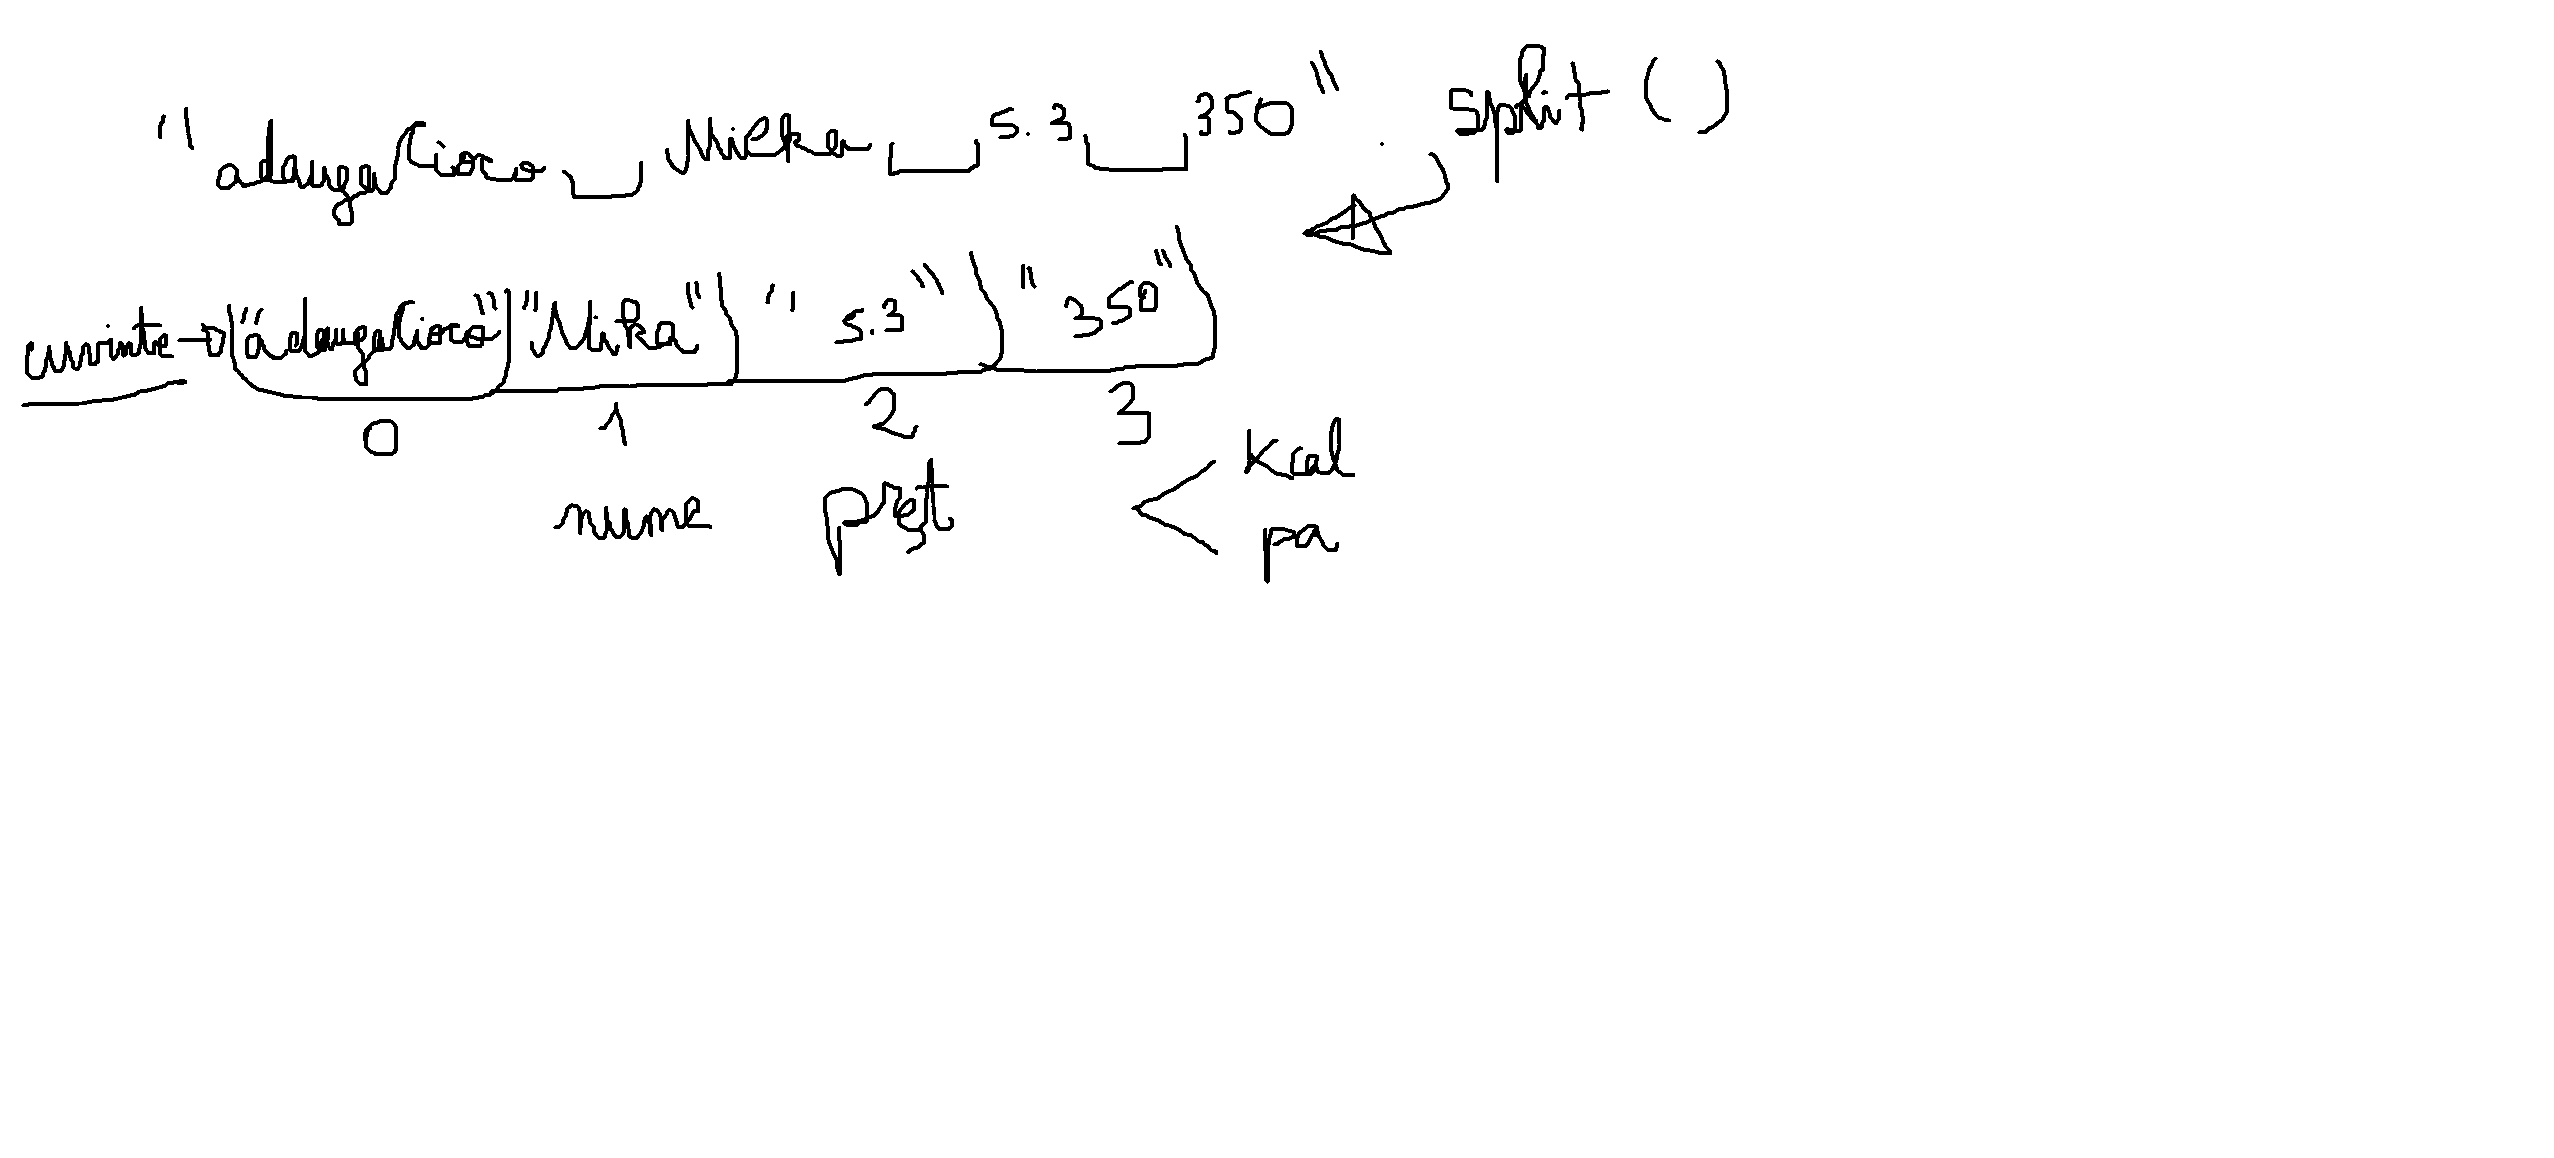 "adaugaCioco Milka 5.3 350" . split ()
cuvinte → "adaugaCioco" "Milka" "5.3" "350"
0 1 2 3
nume preț < kcal
pa